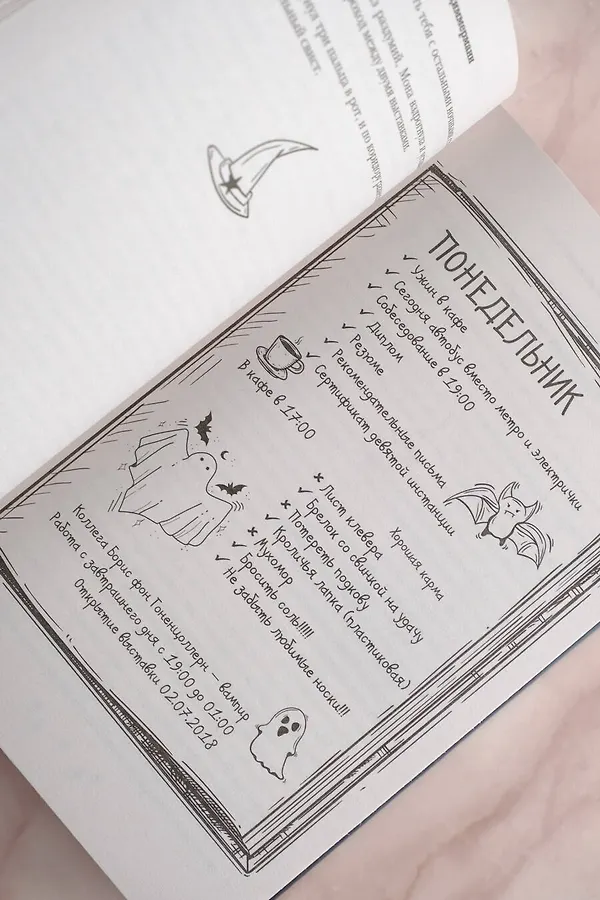 ть тебя с остальными
разумий. Мона вздрогнула
проход между двумя выставками.
три пальца в рот, и по коридору
свист.
ПОНЕДЕЛЬНИК
✓ Ужин в кафе
✓ Сегодня автобус вместо метро и электрички
✓ Собеседование в 19:00
✓ Диплом
✓ Резюме
✓ Рекомендательные письма
✓ Сертификат девятой инстанции
В кафе в 17:00
Хорошая карма
× Лист клевера
✓ Брелок со свинкой на удачу
× Потереть подкову
✓ Кроличья лапка (пластиковая)
× Мухомор
✓ Бросить соль!!!!!
✓ Не забыть любимые носки!!!
Коллега Борис фон Гогенцоллерн – вампир
Работа с завтрашнего дня с 19:00 до 01:00
Открытие выставки 02.07.2018